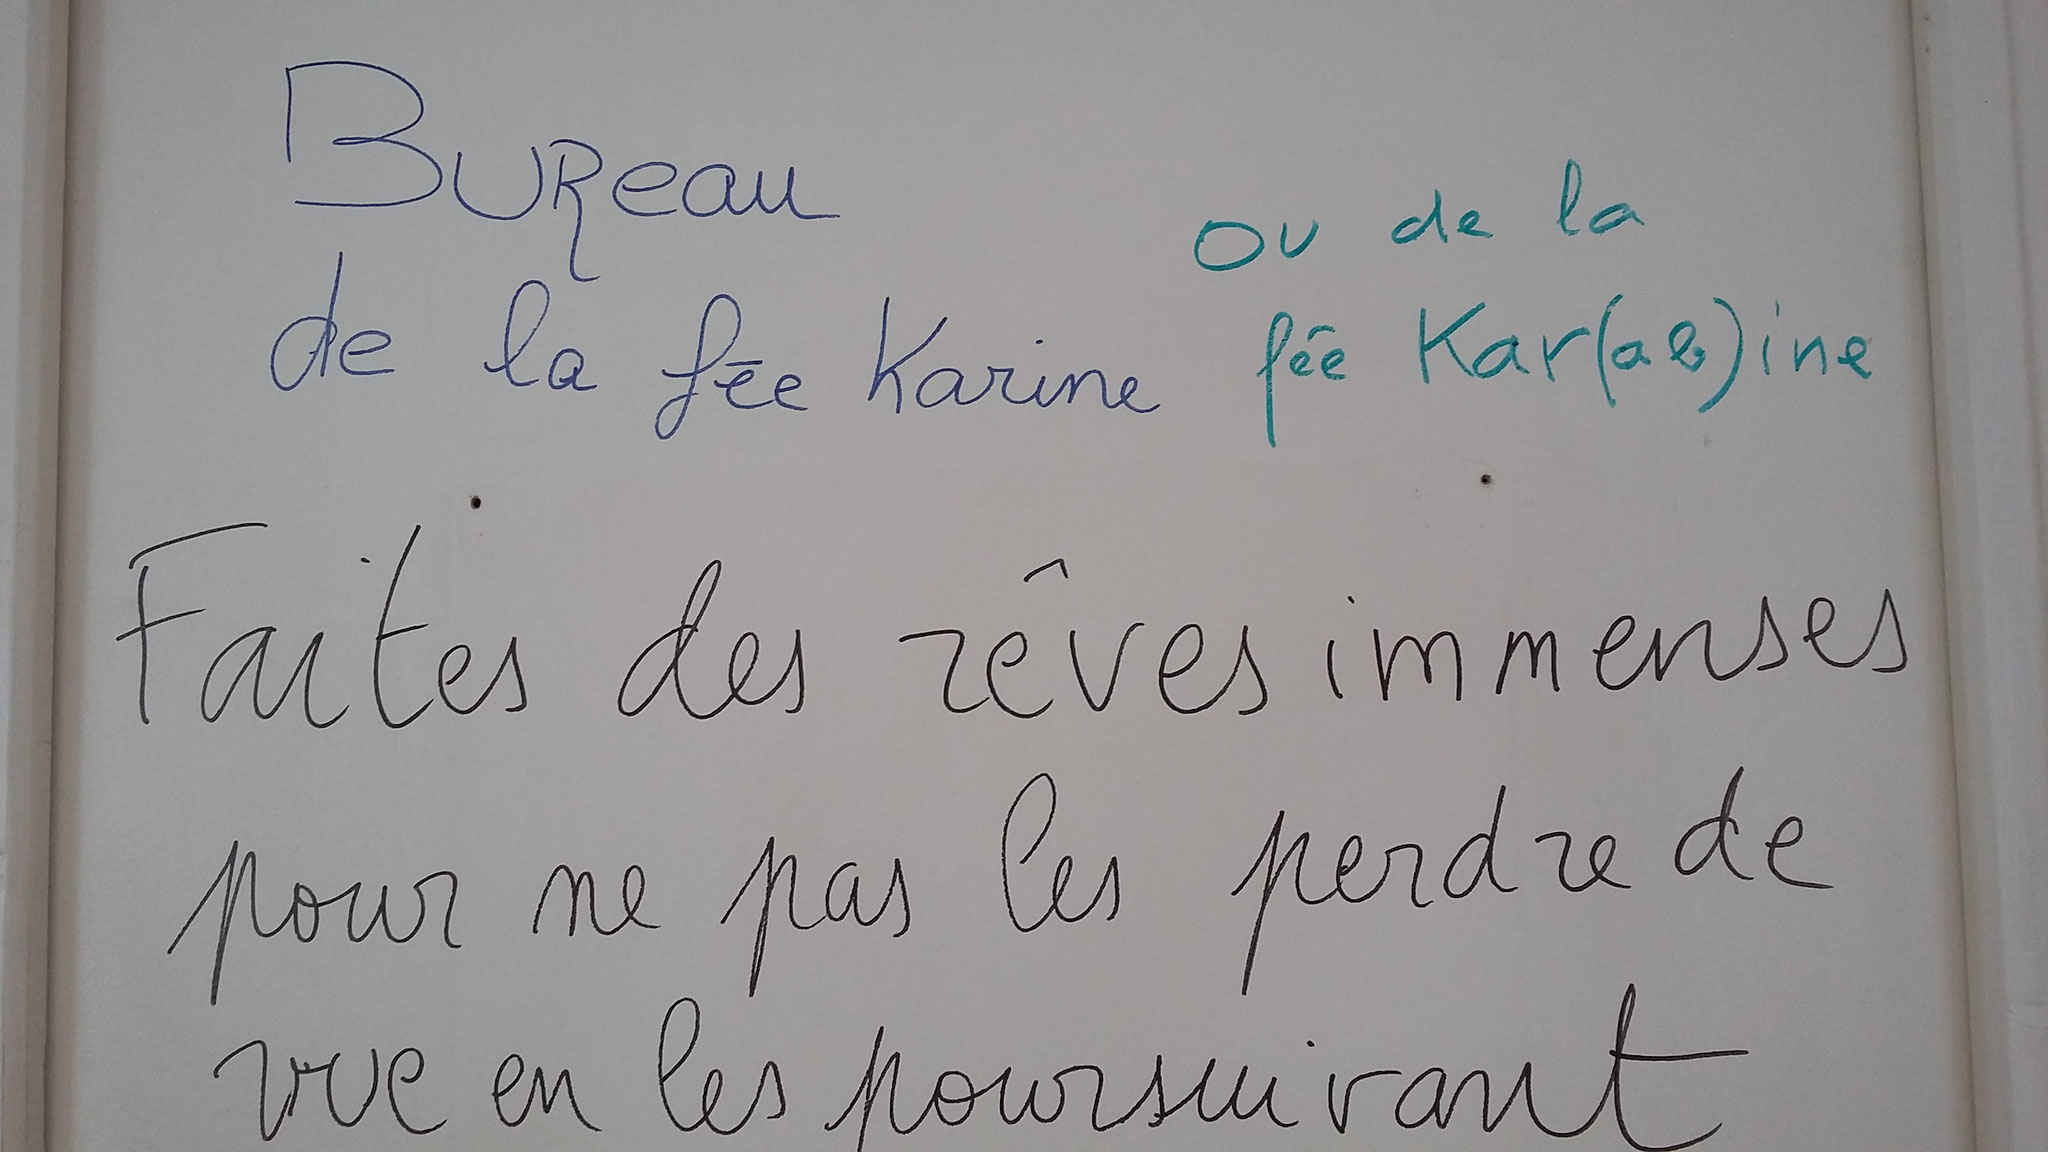 Bureau
de la fée Karine
ou de la
fée Kar(ab)ine
Faites des rêves immenses
pour ne pas les perdre de
vue en les poursuivant